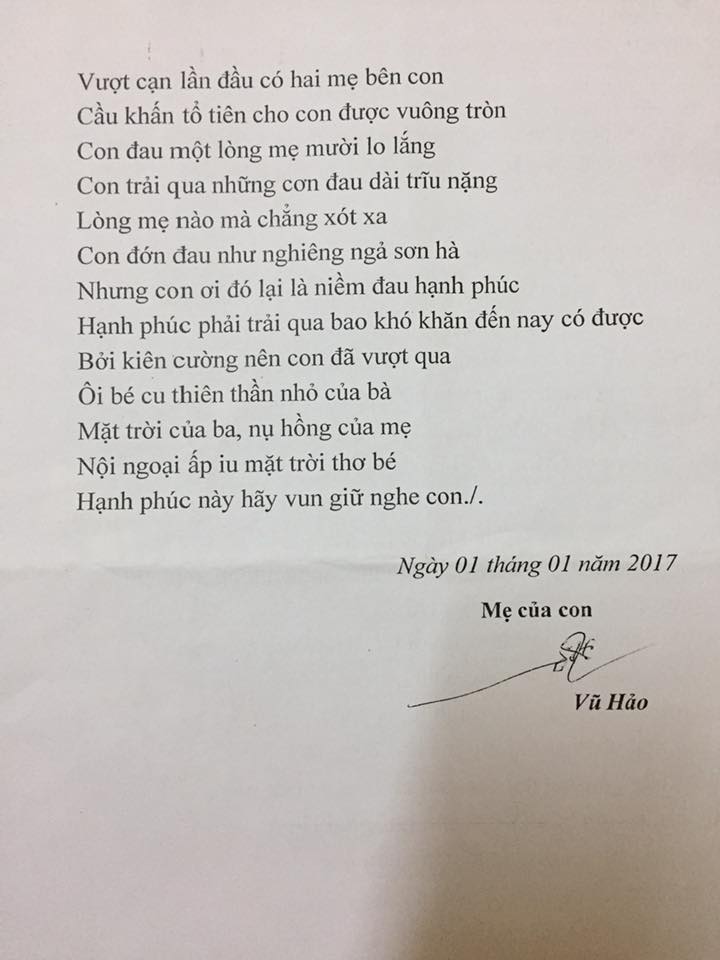 Vượt cạn lần đầu có hai mẹ bên con
Cầu khấn tổ tiên cho con được vuông tròn
Con đau một lòng mẹ mười lo lắng
Con trải qua những cơn đau dài trĩu nặng
Lòng mẹ nào mà chẳng xót xa
Con đớn đau như nghiêng ngả sơn hà
Nhưng con ơi đó lại là niềm đau hạnh phúc
Hạnh phúc phải trải qua bao khó khăn đến nay có được
Bởi kiên cường nên con đã vượt qua
Ôi bé cu thiên thần nhỏ của bà
Mặt trời của ba, nụ hồng của mẹ
Nội ngoại ấp iu mặt trời thơ bé
Hạnh phúc này hãy vun giữ nghe con./.
Ngày 01 tháng 01 năm 2017
Mẹ của con
Vũ Hảo